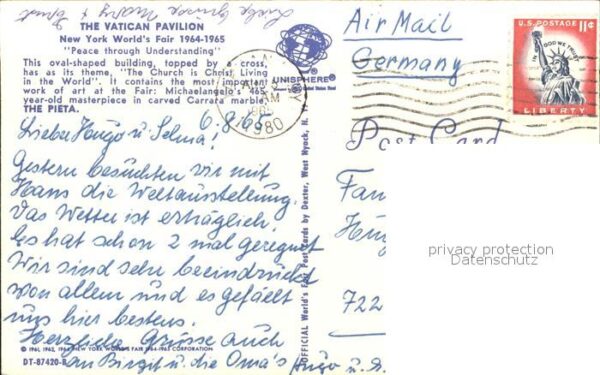 THE VATICAN PAVILION
New York World's Fair 1964-1965
"Peace through Understanding"
This oval-shaped building, topped by a cross,
has as its theme, "The Church is Christ Living
in the World". It contains the most important
work of art at the Fair: Michaelangelo's 465
year-old masterpiece in carved Carrara marble,
THE PIETA.
UNISPHERE®
Air Mail
Germany
U.S. POSTAGE 11¢
IN GOD WE TRUST
LIBERTY
AM
1980
Post Card
6.8.65
Lieber Hugo u. Selma!
Gestern besuchten wir mit
Hans die Weltausstellung.
Das Wetter ist erträglich.
Es hat schon 2 mal geregnet
Wir sind sehr beeindruckt
von allem und es gefällt
uns hier bestens.
Herzliche Grüsse auch
an Birgit u. die Oma's Hugo u.
OFFICIAL World's Fair Post Cards by Dexter, West Nyack, N.
Fam
Hug
722
privacy protection
Datenschutz
© 1961, 1962, 1964 NEW YORK WORLD'S FAIR 1964-1965 CORPORATION
DT-87420-B